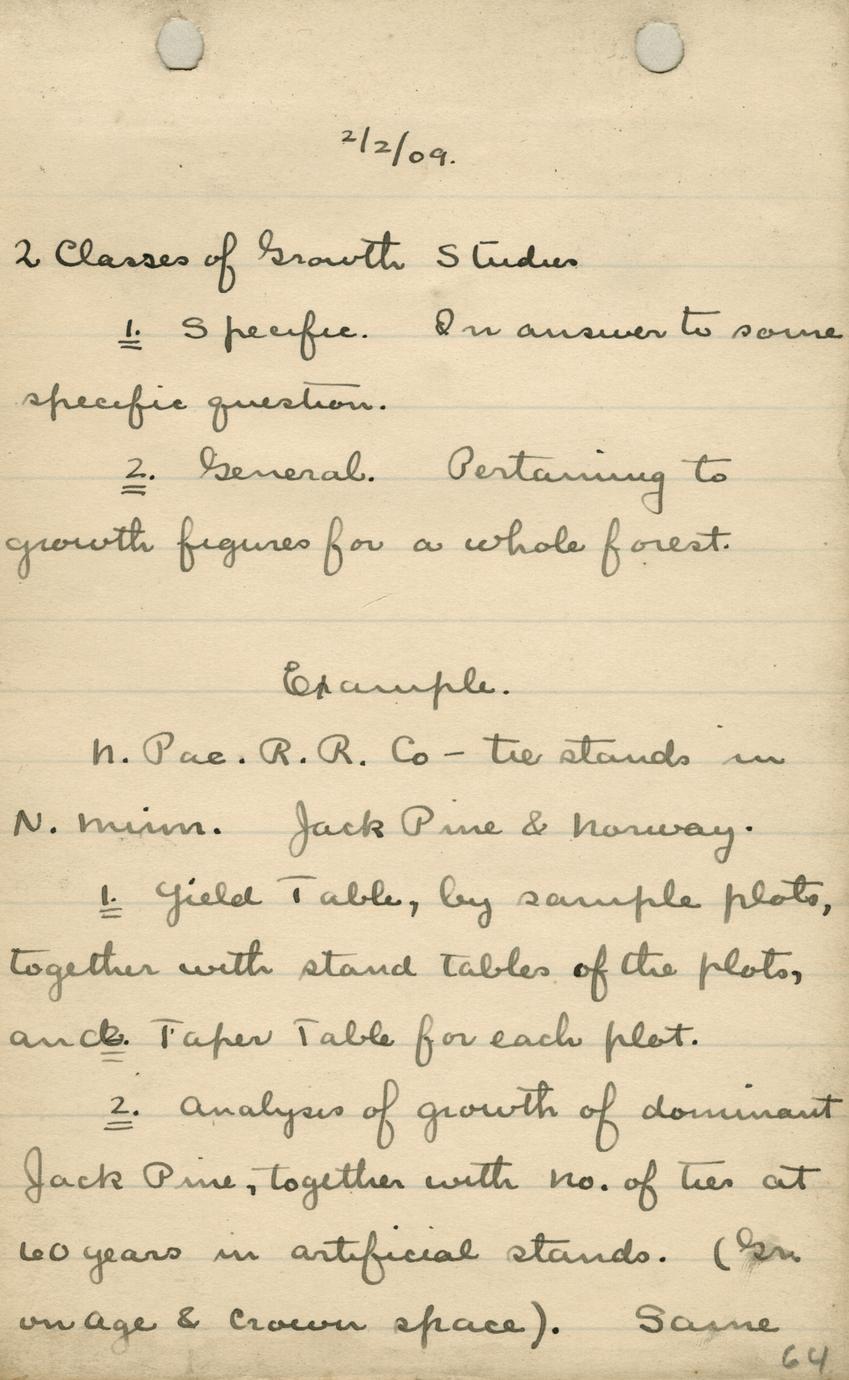 2/2/09.
2 Classes of Growth Studies
1. Specific. In answer to some
specific question.
2. General. Pertaining to
growth figures for a whole forest.
Example.
N. Pac. R. R. Co - tie stands in
N. Minn. Jack Pine & Norway.
1. Yield Table, by sample plots,
together with stand tables of the plots,
and Taper Table for each plot.
2. Analysis of growth of dominant
Jack Pine, together with no. of ties at
60 years in artificial stands. (Gr.
on age & crown space). Same
64